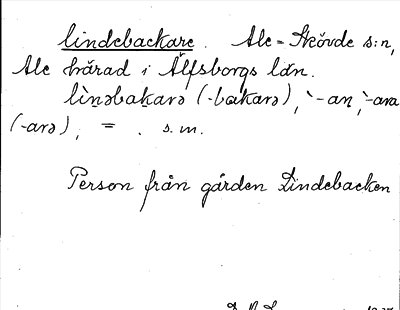 lindebackare. Ale-Skövde s:n,
Ale härad i Älfsborgs län.
lìnəbakarə (-bakarə), `-an, `-ara
(-arə), = . s.m.
Person från gården Lindebacken